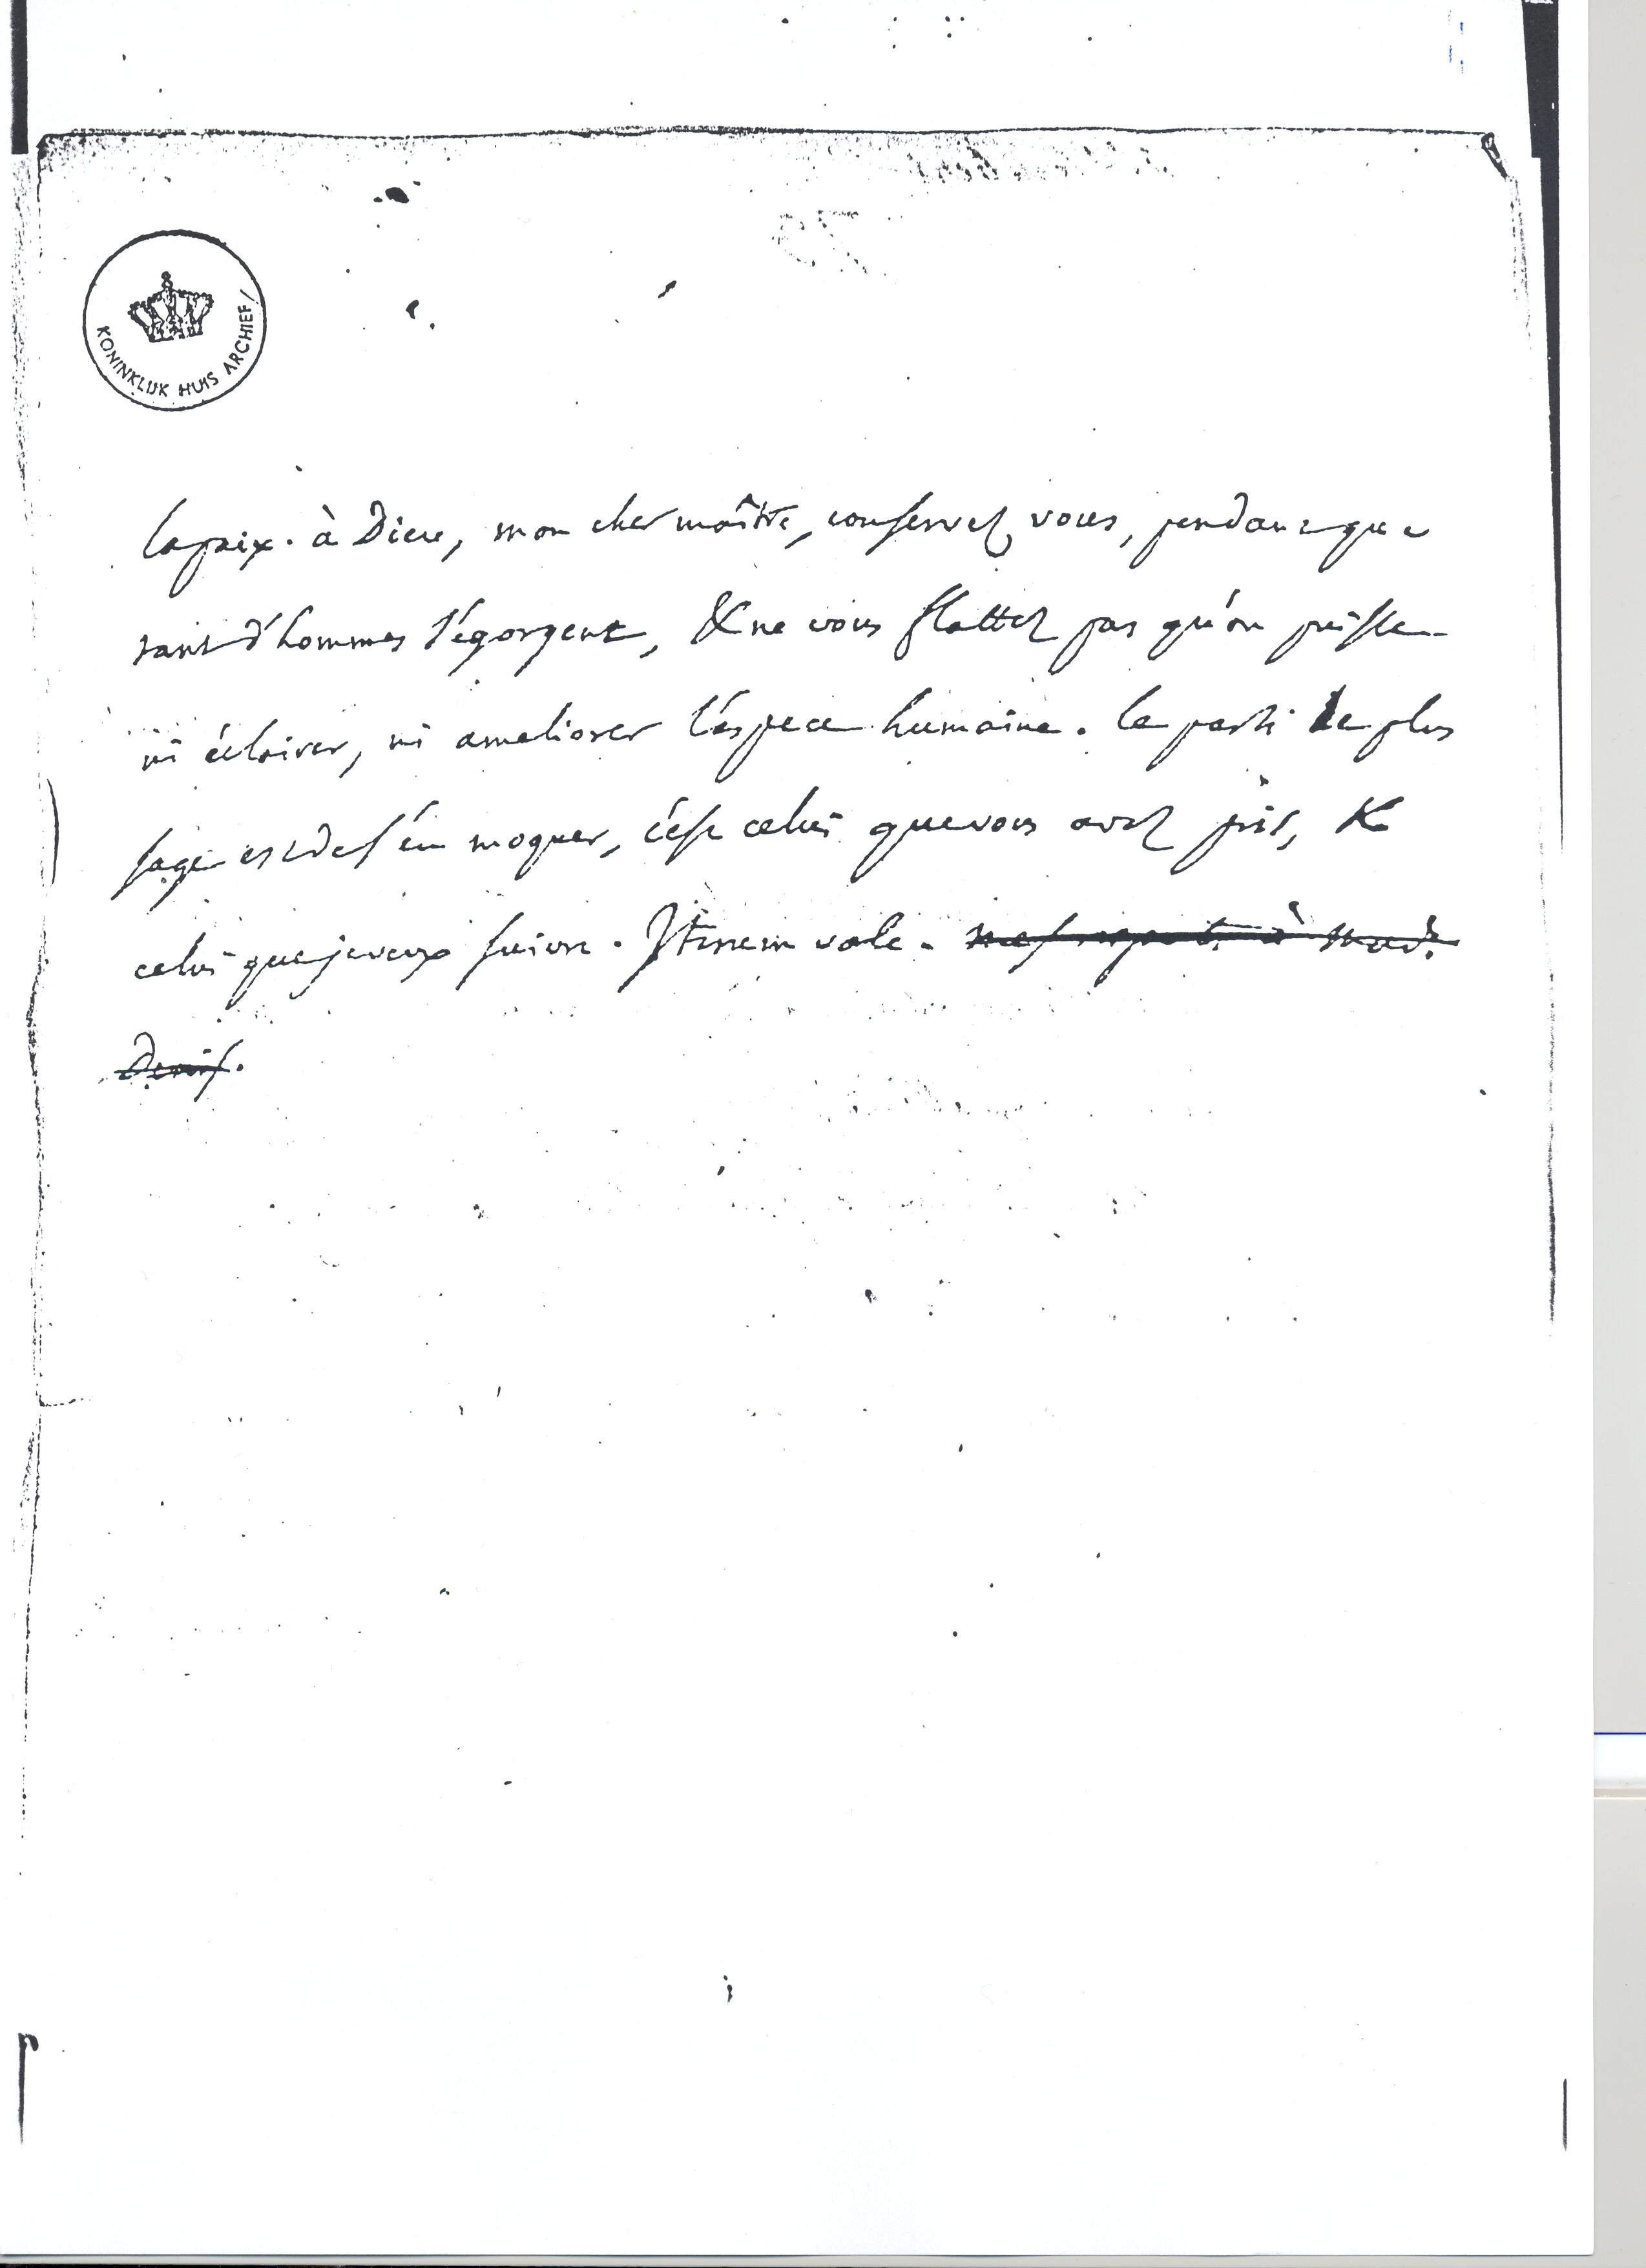 KONINKLIJK HUIS ARCHIEF
la paix. à Dieu, mon cher maître, conservez vous, pendant que
tant d'hommes s'égorgent, & ne vous flattez pas qu'on puisse
ni éclairer, ni ameliorer l'éspece humaine. le parti le plus
sage est de s'én moquer, c'ést celui que vous avez pris, &
celui que je veux suivre. Iterum vale. mes respects à Mad.
Denis.